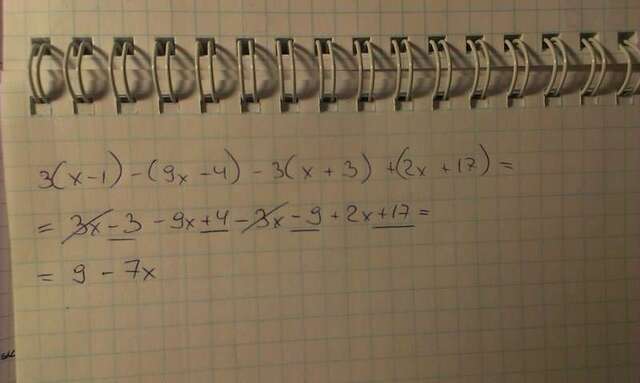 3(x-1) - (9x-4) - 3(x+3) + (2x+17) =
= 3x - 3 - 9x + 4 - 3x - 9 + 2x + 17 =
= 9 - 7x